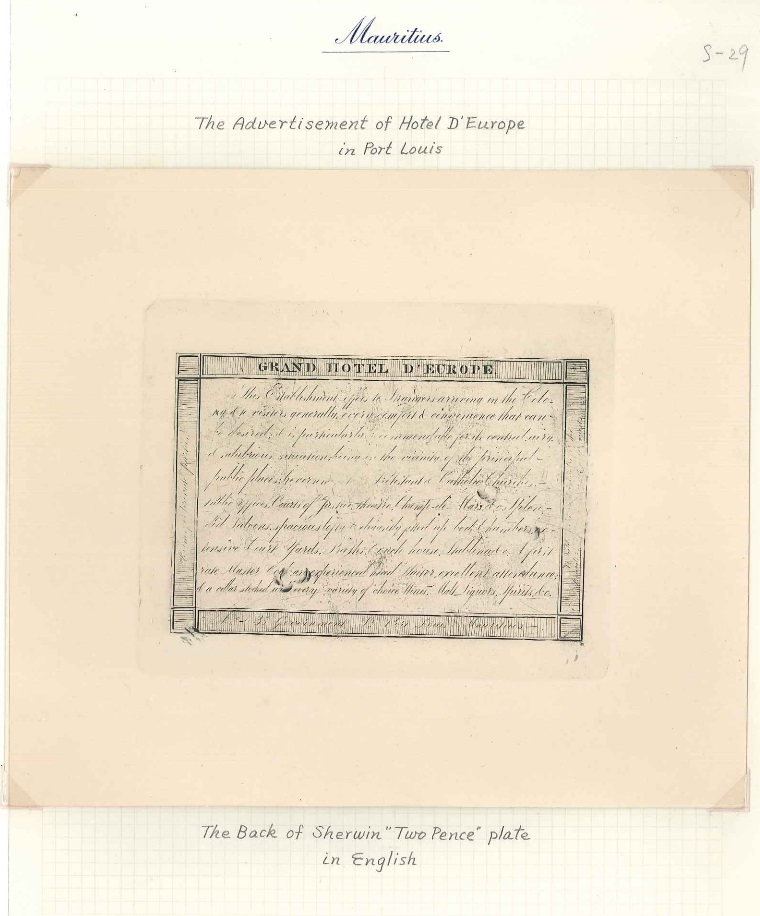 Mauritius.
S-29
The Advertisement of Hotel D'Europe
in Port Louis
GRAND HOTEL D'EUROPE
This Establishment offers to Strangers arriving in the Colo-
ny & to visitors generally, every comfort & convenience that can
be desired, it is particularly recommendable for its central airy,
& salubrious situation, being in the vicinity of the principal
public places, Catholic Churches,
public offices, Courts of Justice, theatre, Champ-de-Mars &c. Splen-
did Saloons, spacious lofty & decently fitted up bed Chambers, ex-
tensive Court Yards, Baths, Coach house, Stabling &c. A first
rate Master Cook an experienced head Waiter, excellent attendance,
& a cellar stocked with every variety of choice Wines, Malt Liquors, Spirits, &c.
Port Louis Mauritius
The Back of Sherwin "Two Pence" plate
in English